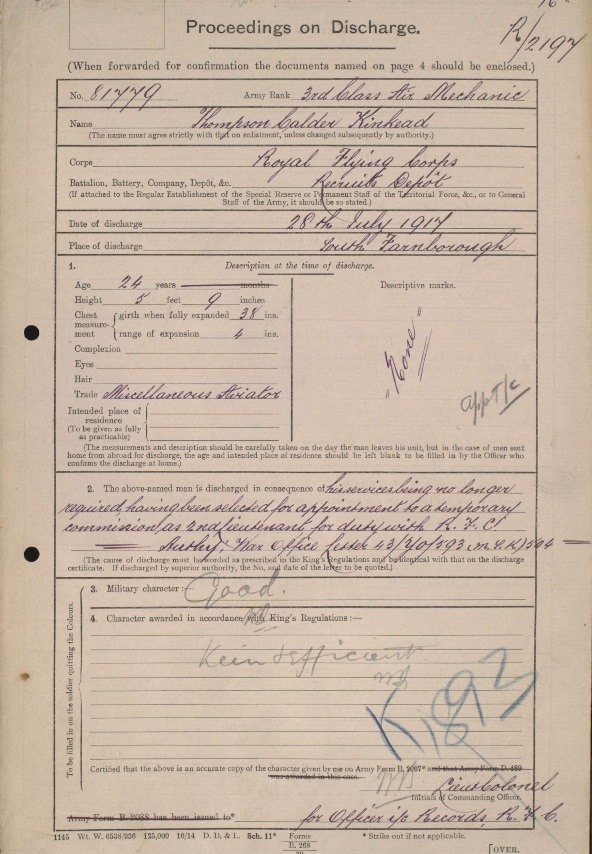 Proceedings on Discharge.
R/2197
(When forwarded for confirmation the documents named on page 4 should be enclosed.)
No. 81779 Army Rank 3rd Class Air Mechanic
Name Thompson Calder Kinkead
(The name must agree strictly with that on enlistment, unless changed subsequently by authority.)
Corps Royal Flying Corps
Battalion, Battery, Company, Depôt, &c. Recruits Depôt
(If attached to the Regular Establishment of the Special Reserve or Permanent Staff of the Territorial Force, &c., or to General
Staff of the Army, it should be so stated.)
Date of discharge 28th July 1917
Place of discharge South Farnborough
1. Description at the time of discharge.
Age 24 years months
Height 5 feet 9 inches
Descriptive marks.
"None"
Chest measurement { girth when fully expanded 38 ins.
range of expansion 4 ins.
Complexion
Eyes
Hair
Trade Miscellaneous Aviator
App T/c
Intended place of
residence
(To be given as fully
as practicable)
(The measurements and description should be carefully taken on the day the man leaves his unit, but in the case of men sent
home from abroad for discharge, the age and intended place of residence should be left blank to be filled in by the Officer who
confirms the discharge at home.)
2. The above-named man is discharged in consequence of his services being no longer
required, having been selected for appointment to a temporary
commission, as 2nd Lieutenant, for duty with R. F. C.
Authy, War Office Letter 43/Y0/593 (M.S.K) 504
(The cause of discharge must be worded as prescribed in the King's Regulations and be identical with that on the discharge
certificate. If discharged by superior authority, the No. and date of the letter to be quoted.)
To be filled in on the soldier quitting the Colours.
3. Military character:— Good.
4. Character awarded in accordance with King's Regulations:—
Keen & efficient
K/1893
Certified that the above is an accurate copy of the character given by me on Army Form B. 2067* and that Army Form D. 489
was awarded in this case.
Lieut Colonel
Initials of Commanding Officer.
Army Form B. 2088 has been issued to*
for Officer i/c Records, R. F. C.
1145 Wt. W. 6538/936 125,000 10/14 D. D. & L. Sch. 11* Forms B. 268
* Strike out if not applicable.
[OVER.